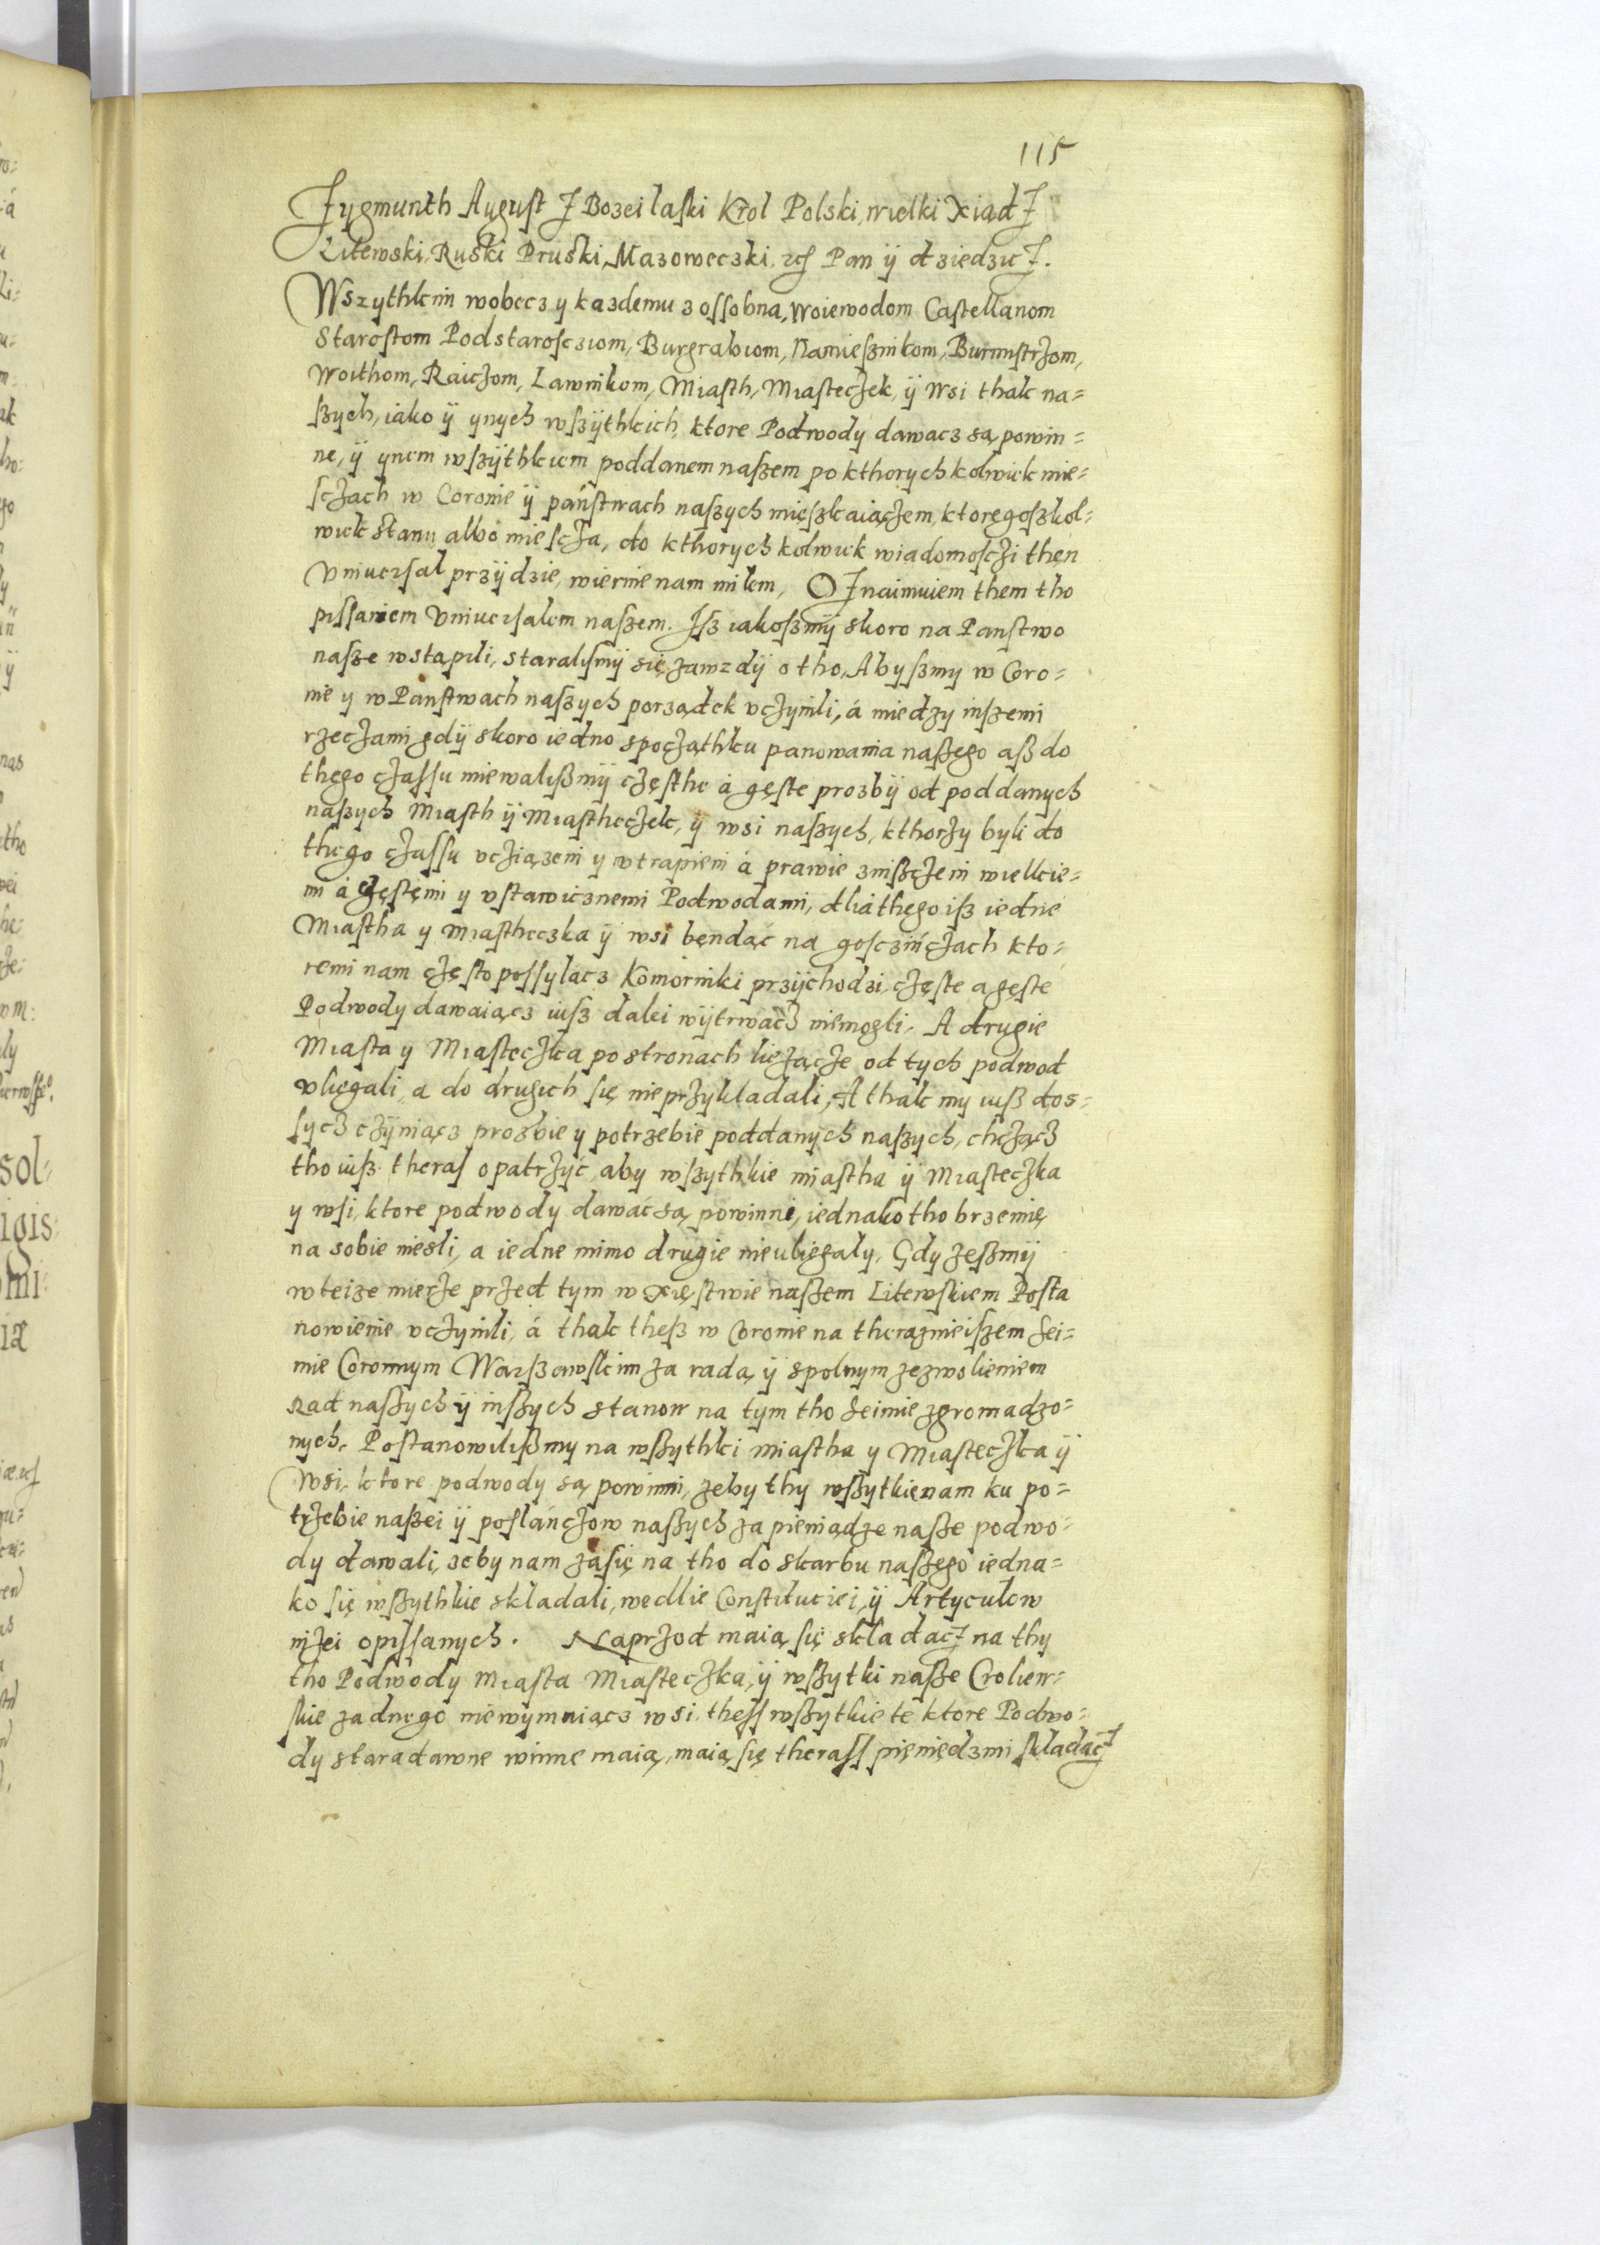 115
Zygmunth August Z Bozei laski Krol Polski, wielki Xiadz
Litewski, Ruski Pruski, Mazoweczki, etc Pan ÿ dziedzicz.
Wszythkim wobecz y kazdemu z ossobna, woiewodom Castellanom
Starostom Podstarosczom, Burgrabiom, Namiesznikom, Burmistrzom,
Woithom, Raiczom, Lawnikom, Miasth, Miasteczek, ÿ Wsi thak na=
szych, iako ÿ ynych wszÿthkich, ktore Podwody dawacz są powin=
ne, ÿ ynem wszÿthkiem poddanem naszem po kthorychkolwiek mie=
sczach w Coronie ÿ państwach naszych mięszkaiączem, ktoręgoszkol=
wiek stanu albo miescza, do kthorychkolwiek wiadomosczi then
Uniuersal przÿdzie, wiernie nam milem, Oznaimuiem them tho
pissaniem Uniuersalem naszem. Isz iakoszmÿ skoro na Panstwo
nasze wstąpili, staralismÿ się zawzdÿ o tho, Abyszmy w Coro=
nie y w Panstwach naszych porządek uczynili, á miedzy inszemi
rzeczami gdÿ skoro iedno spocząthku panowania naszego asz do
thego czassu miewaliszmÿ częsthe á gęste prozbÿ od poddanych
naszych Miasth ÿ Miastheczek, ÿ wsi naszych, kthorzy byli do
thego czassu ucziązeni y utrapieni á prawie zniszczeni wielkie=
mi á gęstęmi y ustawicznemi Podwodami, dlia thego isz iedne
Miastha y miastheczka ÿ wsi bęndąc na gosczinczach kto=
remi nam często possylacz Komorniki przÿchodzi, częste a gęste
Podwody dawaiącz iusz dalei wÿtrwacz niemogli. A drugie
Miasta y Miasteczka po stronach liezącze od tych podwod
uliegali, a do drugich się nieprzykladali, A thak my iusz dos=
sycz czÿniącz prozbie y potrzebie poddanych naszych, chcząc
tho iusz theras opatrzyć, aby wszythkie miastha ÿ Miasteczka
y wsi, ktore podwody dawać są powinni, iednako tho brzemię
na sobie niesli, a iedne mimo drugie nieuliegaly, Gdy zeszmÿ
w teize mierze przed tym w Xięstwie naszem Litewskiem Posta
nowienie uczynili, á thak thesz w Coronie na therazmieiszem sei=
mie Coronnym Warszawskim za radą ÿ spolnym zezwolieniem
Rad naszych ÿ inszych stanow na tym tho seimie zgromadzo=
nych. Postanowiliszmy na wszythki miastha y Miasteczka ÿ
Wsi, ktore podwody są powinni, zeby thy wszytkie nam ku po=
trzebie naszei ÿ poslańczow naszych za pieniądze nasze podwo=
dy dawali, zeby nam zasię na tho do skarbu naszęgo iedna=
ko się wszythkie skladali, wedlie Constituciei, ÿ Artyculow
nizei opissanych. Naprzod maią się składacz na thy
tho Podwody Miasta Miasteczka, ÿ wszytki nasze Croliew=
skie zadnego niewymniącz wsi, thess wszytkie te ktore Podwo=
dy staradawne winne maią, maią się therass pięniędzmi składacz